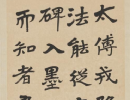 太傅戎
法能從
碑入墨
而知者